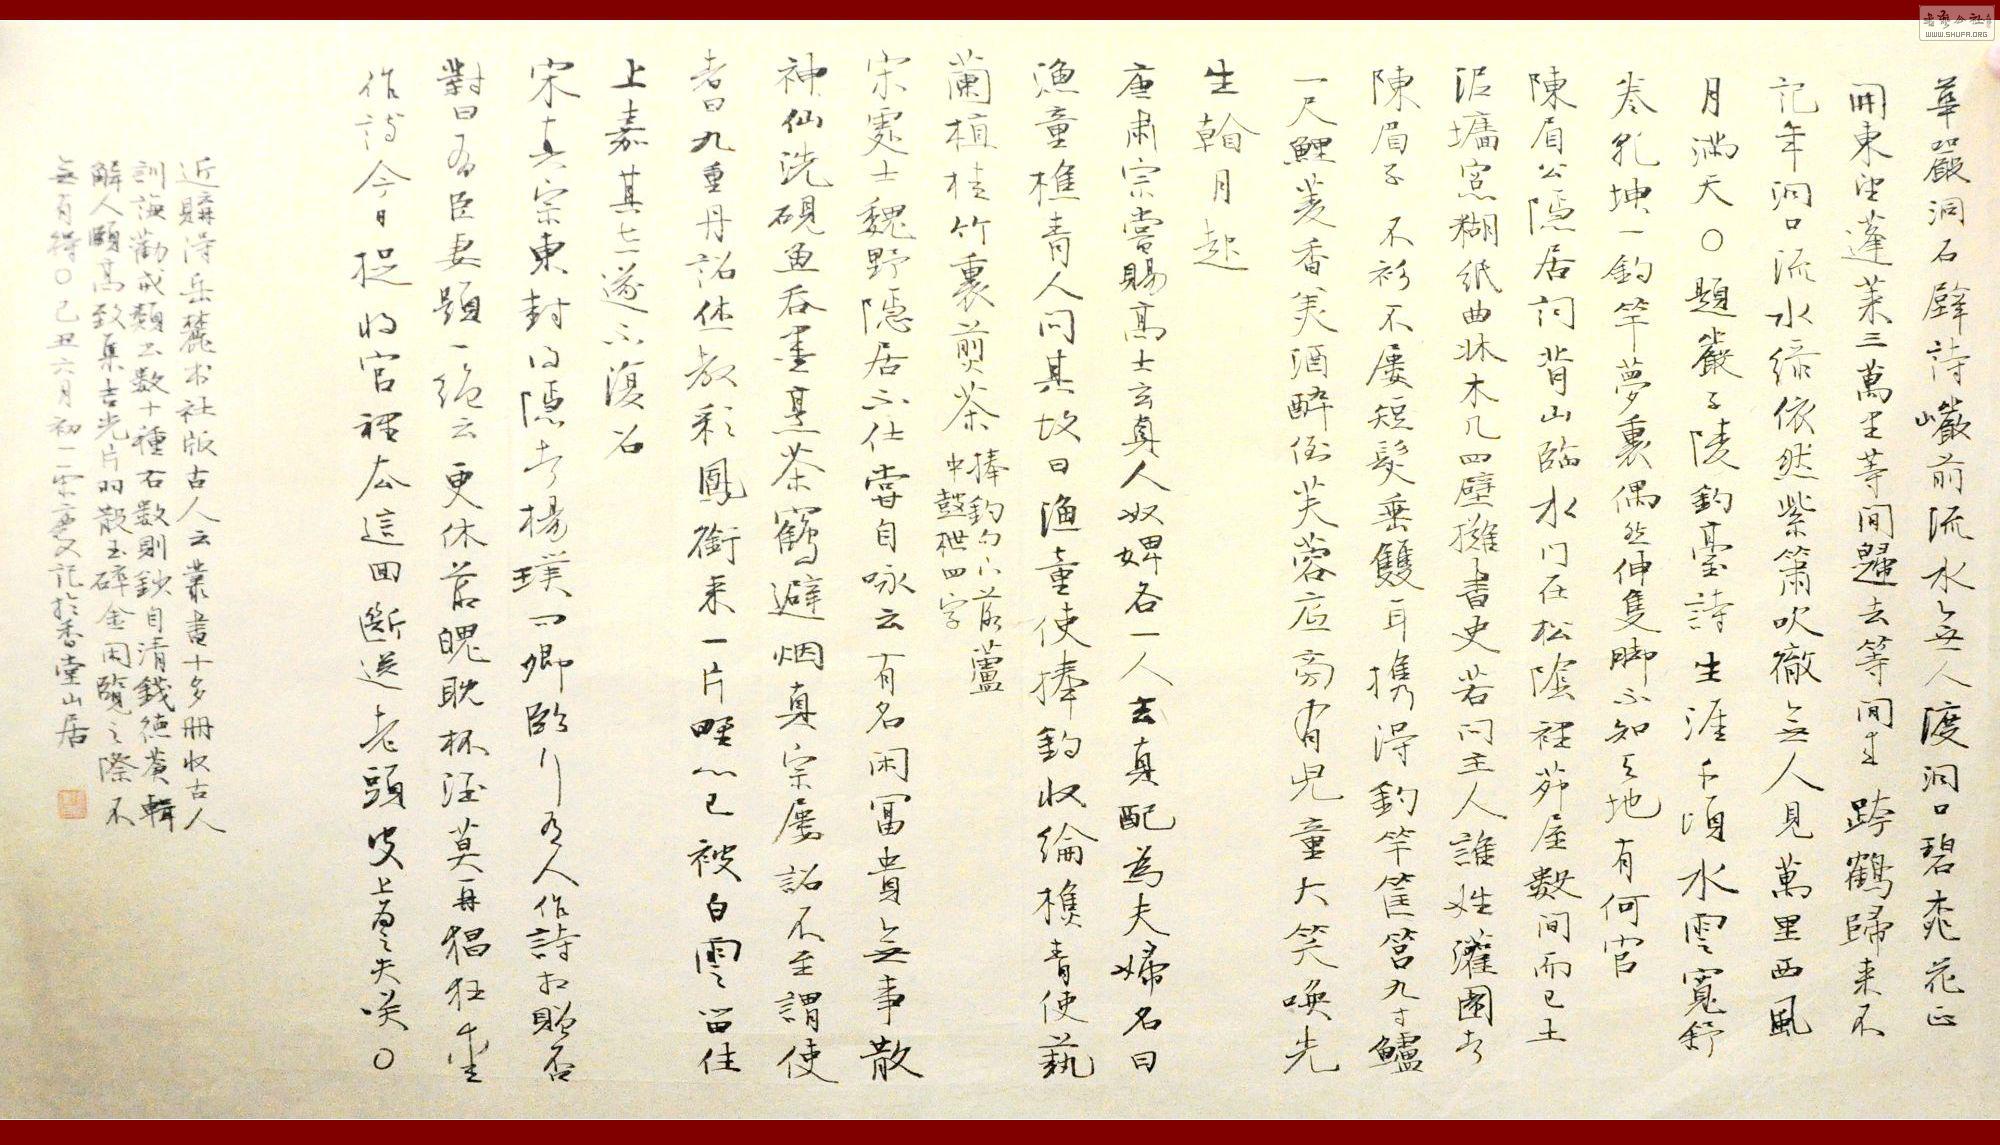 華嚴洞石壁詩巖前流水無人渡洞口碧桃花正
開東望蓬萊三萬里等間歸去等間來 跨鶴歸來不
記年洞口流水綠依然紫簫吹徹無人見萬里西風
月滿天〇題嚴子陵釣臺詩 生涯千頃水雲寬舒
卷乾坤一釣竿夢裏偶然伸隻脚不知天地有何官
陳眉公隱居詞背山臨水门在松陰裡茆屋數间而已土
泥墻窓糊紙曲牀木几四壁攤書史若问主人誰姓灌園者
陳眉子 不衫不屨短髮垂雙耳携得釣竿筐筥九寸鱸
一尺鯉菱香美酒醉倒芙蓉底旁有兒童大笑喚先
生翰月起
唐肅宗嘗賜高士玄真人奴婢各一人玄真配為夫婦名曰
漁童樵青人问其故曰漁童使捧釣收綸樵青使蓺
蘭植桂竹裏煎茶
捧釣句下落蘆
中鼓枻四字
宋處士魏野隱居不仕嘗自咏云有名闲冨貴無事散
神仙洗硯魚吞墨烹茶鶴避烟真宗屢詔不至謂使
者曰九重丹詔休教彩鳳銜来一片野心已被白雲留住
上嘉其志遂不復召
宋真宗東封得隱者楊璞问卿臨行有人作詩相贈否
對曰有臣妻題一絶云更休落魄耽杯酒莫再猖狂愛
作詩今日捉將官裡去這回斷送老頭皮上為之失笑〇
近購得岳麓书社版古人云叢書十多册收古人
訓誨勸戒類书数十種右数則鈔自清錢德蒼輯
解人頤高致集吉光片羽散玉碎金闲覽之際不
無有得〇己丑六月初二宋慶文記於香堂山居
WWW.SHUFA.ORG